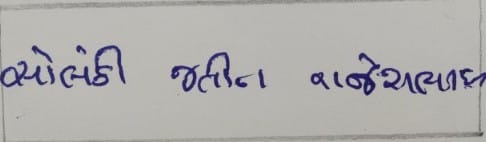 સોલંકી જતીન રાજેશભાઇ